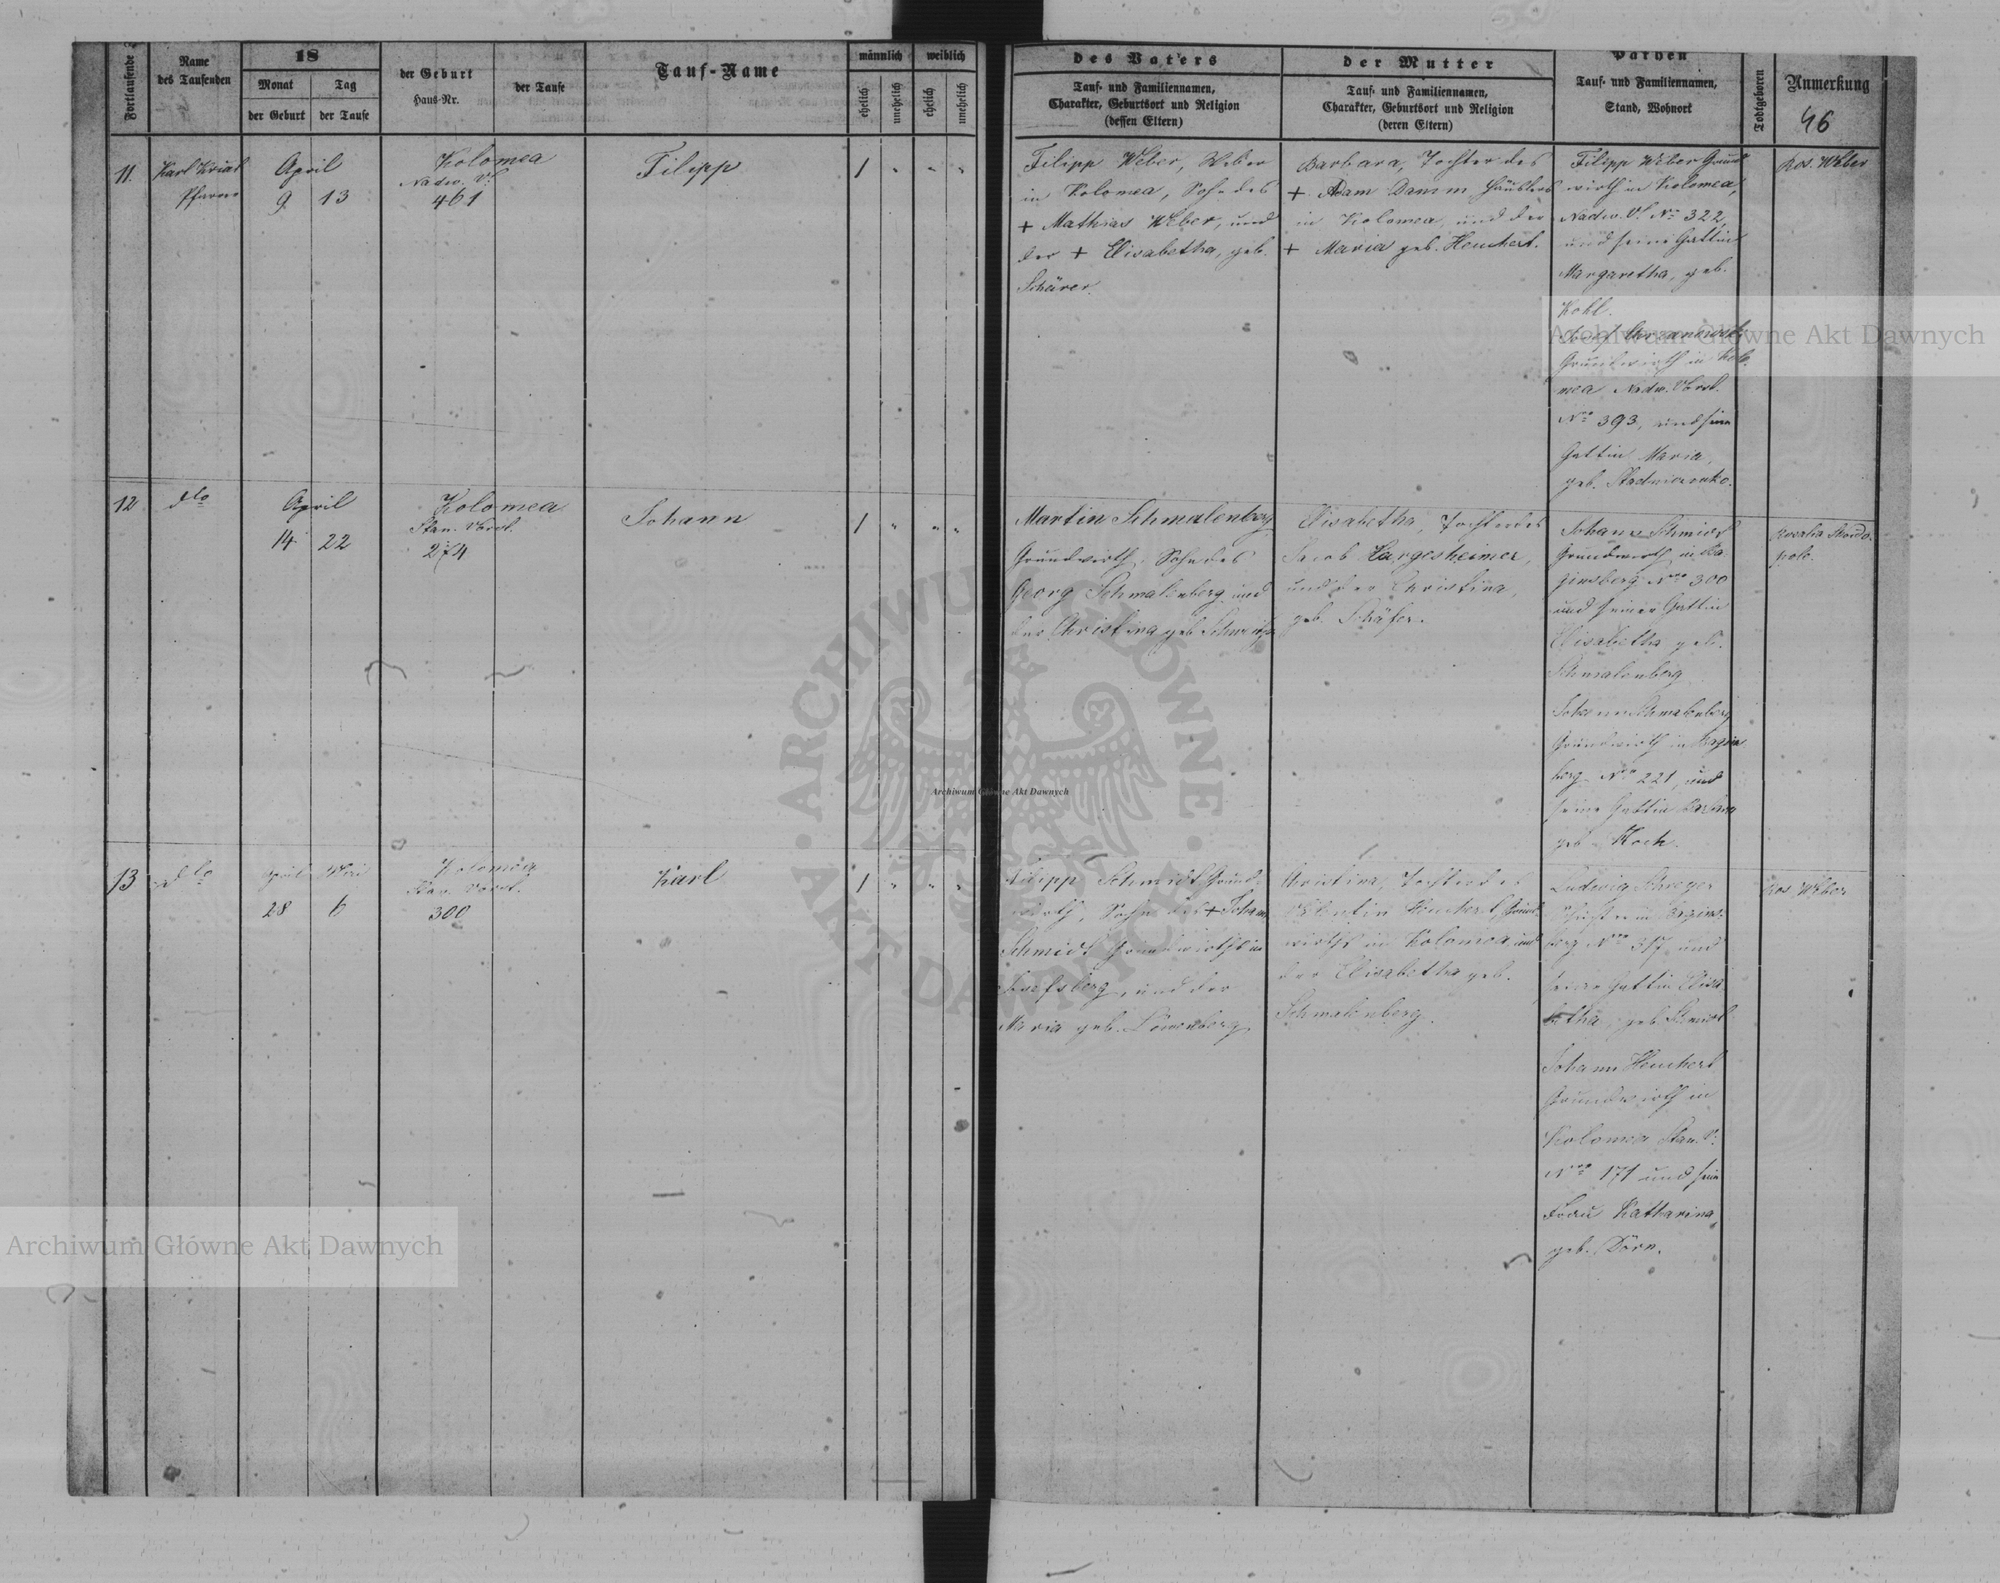 Fortlaufende
Name
des Taufenden
18
Monat
Tag
der Geburt
der Taufe
der Geburt
Haus-Nr.
der Taufe
Tauf-Name
männlich
weiblich
ehelich
unehelich
ehelich
unehelich
des Vaters
Tauf- und Familiennamen,
Charakter, Geburtsort und Religion
(dessen Eltern)
der Mutter
Tauf- und Familiennamen,
Charakter, Geburtsort und Religion
(deren Eltern)
Pathen
Tauf- und Familiennamen,
Stand, Wohnort
Todtgeboren
Anmerkung
46
11.
Karl
Pfarrer
April
9 13
Kolomea
Nadw. V.
461
Filipp
1 " " "
Filipp Weber, Weber
in Kolomea, Sohn des
+ Mathias Weber, und
der + Elisabetha, geb.
Schärer.
Barbara, Tochter des
+ Adam Damm Häuslers
in Kolomea und der
+ Maria geb. Heuchert.
Filipp Weber Grund
wirth in Kolomea,
Nadw. V. No 322,
und seine Gattin
Margaretha, geb.
Kohl.
Josef
Grundwirth in Kolo
mea Nadw. Vorst.
Nro 393, und seine
Gattin Maria,
geb.
Ros. Weber
12
dto
April
14 22
Kolomea
Stan. Vorst.
274
Johann
1 " " "
Martin Schmalenberg
Grundwirth, Sohn des
Georg Schmalenberg und
der Christina geb.
Elisabetha, Tochter des
Jacob Hargesheimer,
und der Christina,
geb. Schäfer.
Johann Schmidt
Grundwirth in Ba
ginsberg Nro 300
und seiner Gattin
Elisabetha geb.
Schmalenberg
Johann Schmalenberg
Grundwirth in Bagins
berg Nro 221, und
seine Gattin Barbara
geb. Koch.
Rosalia
13
dto
April Mai
28 6
Kolomea
Stan. Vorst.
300
Karl
1 " " "
Filipp Schmidt Grund-
wirth, Sohn des + Johann
Schmidt Grundwirths in
Josefsberg, und der
Maria geb. Löwenberg
Christina, Tochter des
Valentin Heuchert, Grund
wirths in Kolomea und
der Elisabetha geb.
Schmalenberg.
Ludwig Schreyer
in Bagins-
berg Nro 317 und
seine Gattin Elisa
betha, geb. Schmidt
Johann Heuchert
Grundwirth in
Kolomea Stan. V.
Nro 171 und seine
Frau Katharina,
geb. Dörn.
Ros. Weber
Archiwum Główne Akt Dawnych
Archiwum Główne Akt Dawnych
Archiwum Główne Akt Dawnych
ARCHIWUM GŁÓWNE · AKT DAWNYCH ·